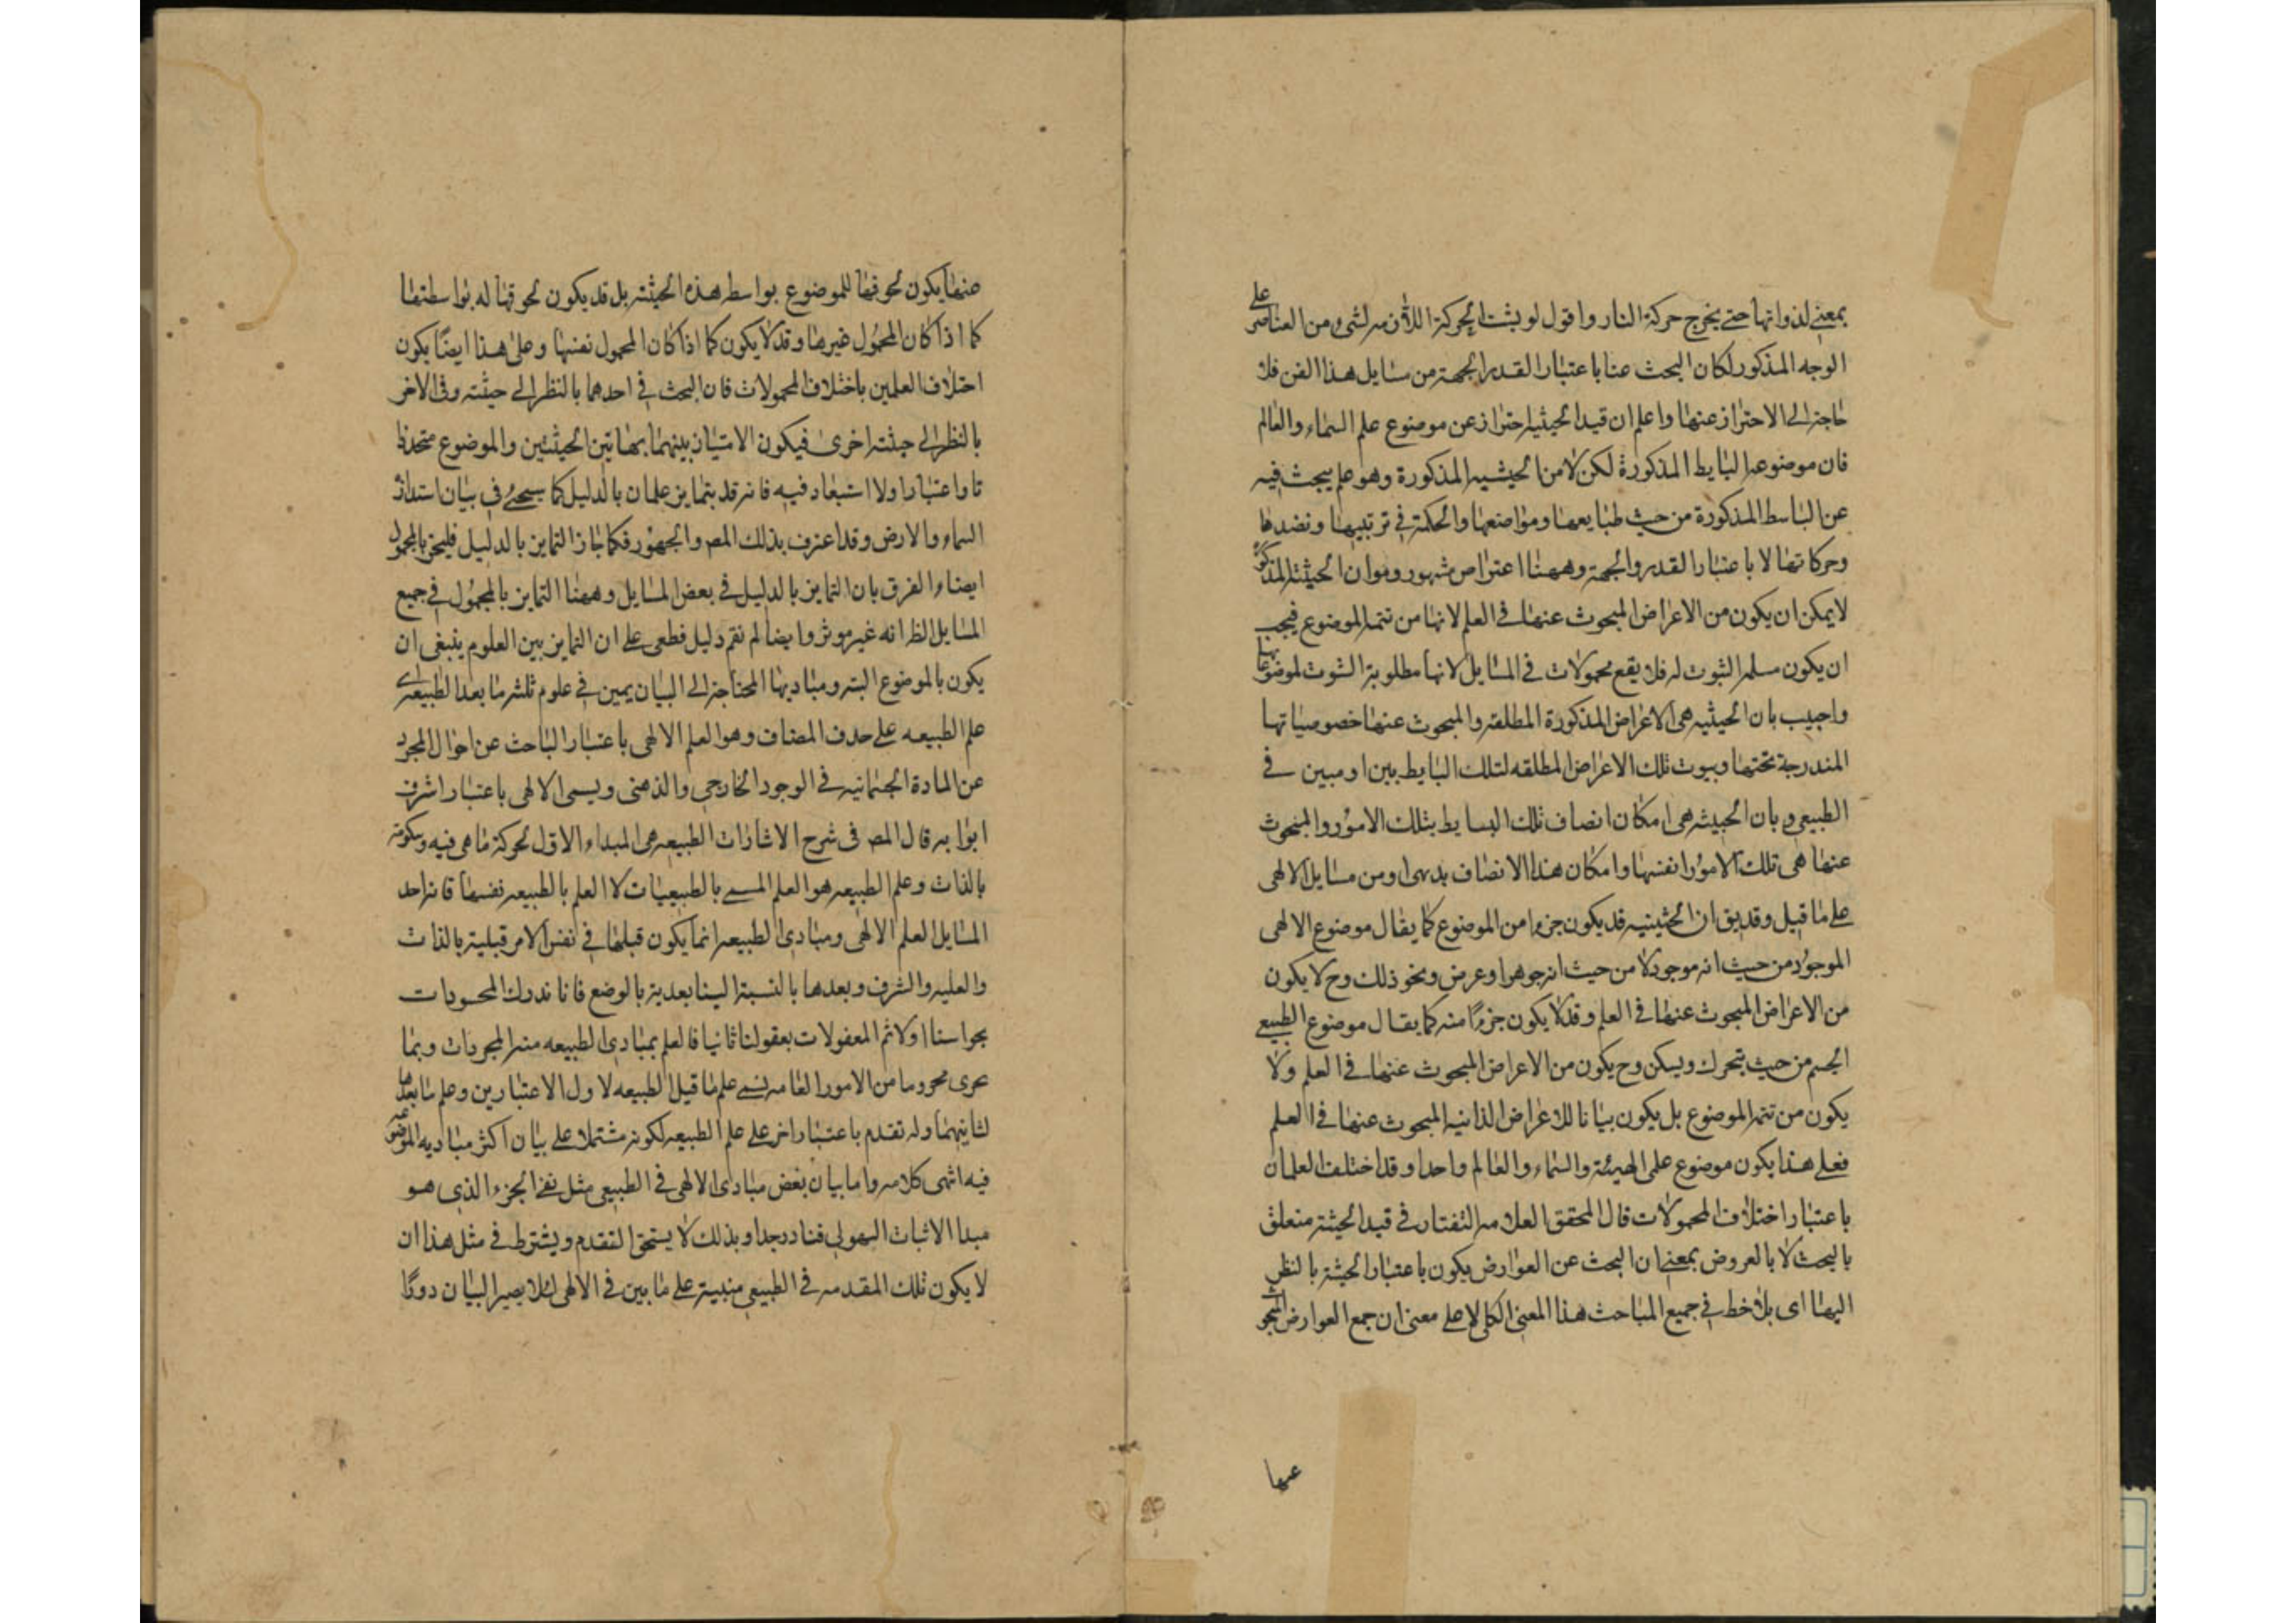 بمعنى لذواتها حتى يخرج حركة النار واقول لو يثبت الحركة اللازمة لشيء من العناصر على
الوجه المذكور لكان البحث عنا باعتبار القدر الجهة من مسايل هذا الفن فلا
حاجة الى الاحتراز عنها واعلم ان قيد الحيثية احتراز عن موضوع علم السماء والعالم
فان موضوعه البسايط المذكورة لكن لا من الحيثية المذكورة وهو علم يبحث فيه
عن البسايط المذكورة من حيث طبايعها ومواضعها والحكمة في ترتيبها ونضدها
وحركاتها لا باعتبار القدر والجهة وههنا اعتراض مشهور وهو ان الحيثية المذكورة
لا يمكن ان يكون من الاعراض المبحوث عنها في العلم لانها من تتمة الموضوع فيجب
ان يكون مسلم الثبوت له فلا يقع محمولات في المسايل لانها مطلوبة الثبوت لموضوعاتها
واجيب بان الحيثية هي الاعراض المذكورة المطلقة والمبحوث عنها خصوصياتها
المندرجة تحتها وبيوت تلك الاعراض المطلقه لتلك البسايط بين او مبين في
الطبيعي وبان الحيثية هي امكان اتصاف تلك البسايط بتلك الامور والمبحوث
عنها هي تلك الامور انفسها وامكان هذا الاتصاف بديهي او من مسايل الالهي
على ما قيل وقد يق ان الحيثية قد يكون جزءا من الموضوع كما يقال موضوع الالهي
الموجود من حيث انه موجود لا من حيث انه جوهر او عرض ونحو ذلك وح لا يكون
من الاعراض المبحوث عنها في العلم وقد لا يكون جزءا منه كما يقال موضوع الطبيعي
الجسم من حيث يتحرك ويسكن وح يكون من الاعراض المبحوث عنها في العلم ولا
يكون من تتمة الموضوع بل يكون بيانا للاعراض الذاتية المبحوث عنها في العلم
فعلى هذا يكون موضوع علمي الهيئة والسماء والعالم واحدا وقد اختلف العلمان
باعتبار اختلاف المحمولات قال المحقق العلامه التفتازاني قيد الحيثية متعلق
بالبحث لا بالعروض بمعنى ان البحث عن العوارض يكون باعتبار الحيثية بالنظر
اليها اي يلاحظ في جميع المباحث هذا المعنى الكلي لا على معنى ان جمع العوارض المبحوث
عنها
عنها يكون لحوقها للموضوع بواسطة هذه الحيثية بل قد يكون لحوقها له بواسطتها
كما اذا كان المحمول غيرها وقد لا يكون كما اذا كان المحمول نفسها وعلى هذا ايضا يكون
اختلاف العلمين باختلاف المحمولات فان البحث في احدهما بالنظر الى حيثية وفي الاخر
بالنظر الى حيثية اخرى فيكون الامتياز بينهما بهاتين الحيثيتين والموضوع متحد ذا
تا واعتبارا ولا استبعاد فيه فانه قد يتمايز علمان بالدليل كما سيجيء في بيان استدارة
السماء والارض وقد اعترف بذلك المصـ والجمهور فكما جاز التمايز بالدليل فليجز بالمحمول
ايضا والفرق بان التمايز بالدليل في بعض المسايل وههنا التمايز بالمحمول في جميع
المسايل الظ انه غير موثر وايضا لم نقم دليل قطعي على ان التمايز بين العلوم ينبغي ان
يكون بالموضوع البتة ومباديها المحتاجة الى البيان يبين في علوم ثلثة ما بعد الطبيعة اي
علم الطبيعه على حذف المضاف وهو العلم الالهي باعتبار الباحث عن احوال المجرد
عن المادة الجسمانية في الوجود الخارجي والذهني ويسمى الالهي باعتبار اشرف
ابوابه قال المصـ في شرح الاشارات الطبيعه هي المبداء الاول لحركة ما هي فيه وسكونه
بالذات وعلم الطبيعه هو العلم المسمى بالطبيعيات لا العلم بالطبيعه نفسها فانه احد
المسايل العلم الالهي ومبادي الطبيعه انما يكون قبلها في نفس الامر قبلية بالذات
والعلية والشرف وبعدها بالنسبة الينا بعدية بالوضع فانا ندرك المحسوسات
بحواسنا اولا ثم المعقولات بعقولنا ثانيا فالعلم بمبادي الطبيعه من المجردات وبما
يجري مجراها من الامور العامة يسمى علم ما قبل الطبيعه لاول الاعتبارين وعلم ما بعدها
لثانيهما وله تقدم باعتبار اخر على علم الطبيعه لكونه مشتملا على بيان اكثر مباديه الموضوعة
فيه انتهى كلامه واما بيان بعض مبادي الالهي في الطبيعي مثل نفي الجزء الذي هو
مبدا الاثبات الهيولي فنادر جدا وبذلك لا يستحق التقدم ويشترط في مثل هذا ان
لا يكون تلك المقدمه في الطبيعي مبنية على ما بين في الالهي لئلا يصير البيان دورا